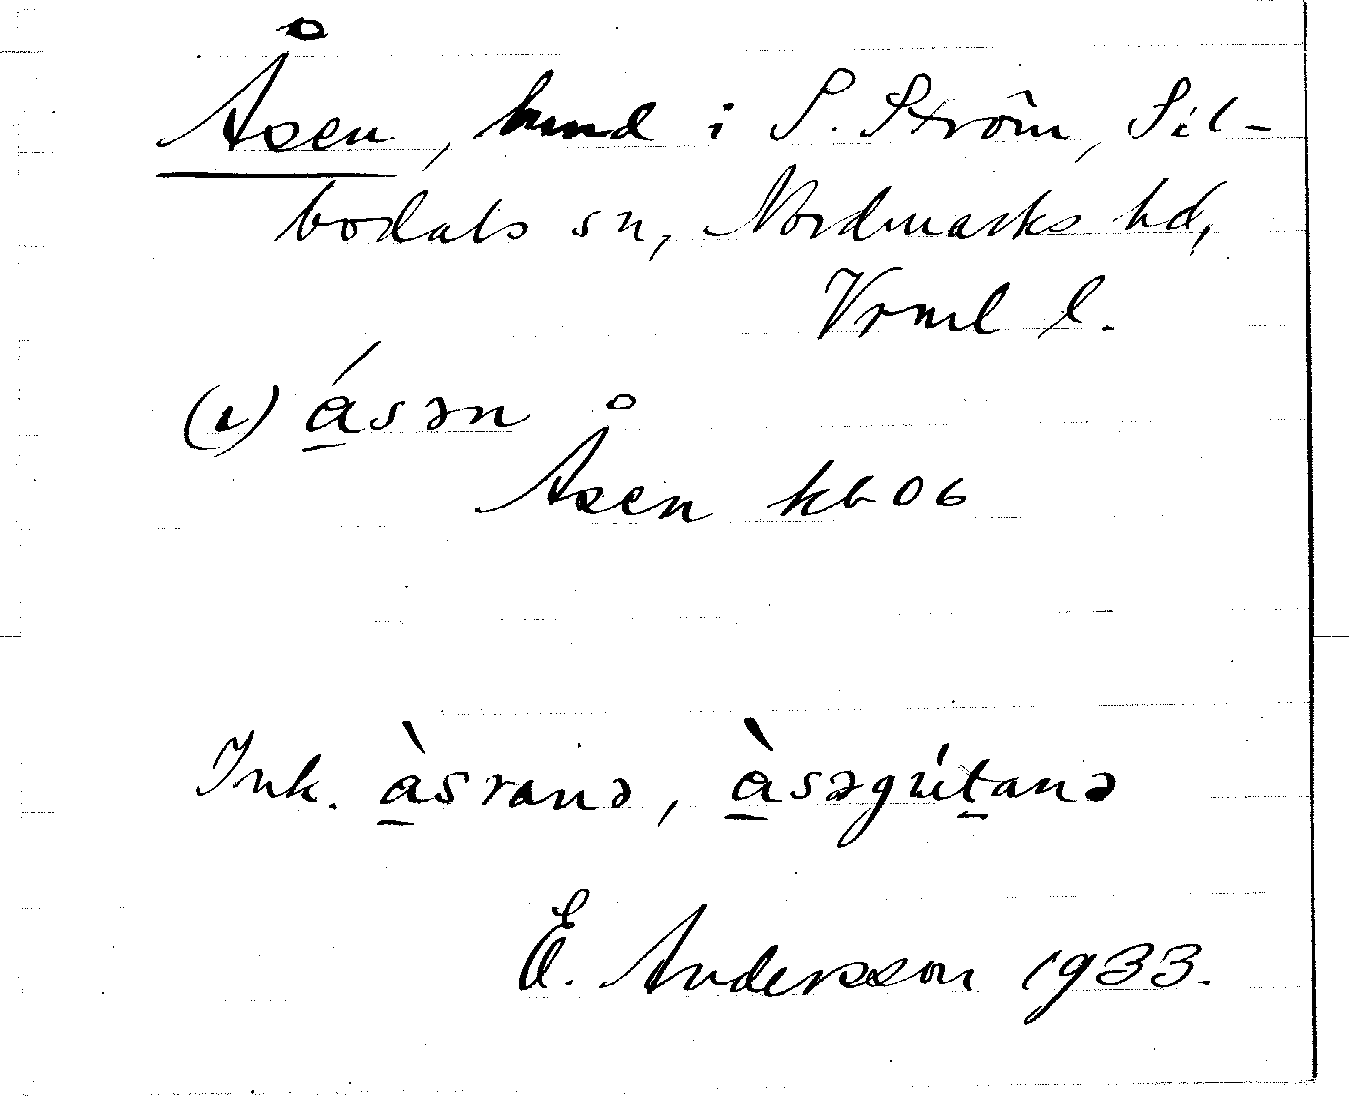 Åsen, hmd i S. Ström, Sil-
bodals sn, Nordmarks hd,
Vrml l.
(ɩ) á̱sən
Åsen kb 06
Ink. à̱sranə, à̱səgút̠anə
E. Andersson 1933.